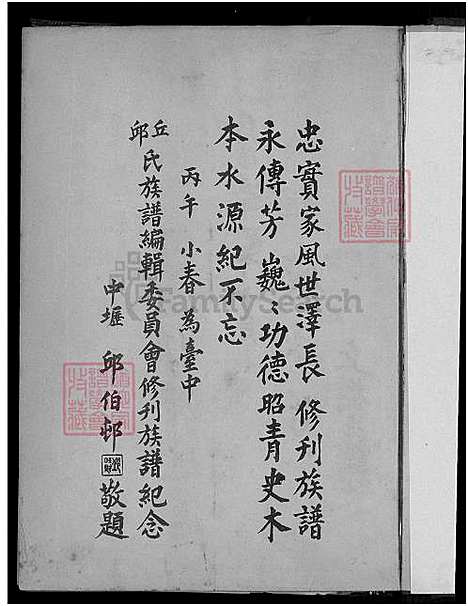 忠實家風世澤長 修刊族譜
永傳芳 巍〻功德昭青史 木
本水源紀不忘
丙午 小春 為臺中
丘邱氏族譜編輯委員會修刊族譜紀念
中壢 邱伯邨 敬題
FamilySearch